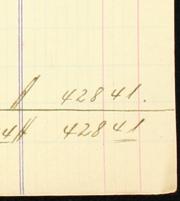 42841.
4 42841